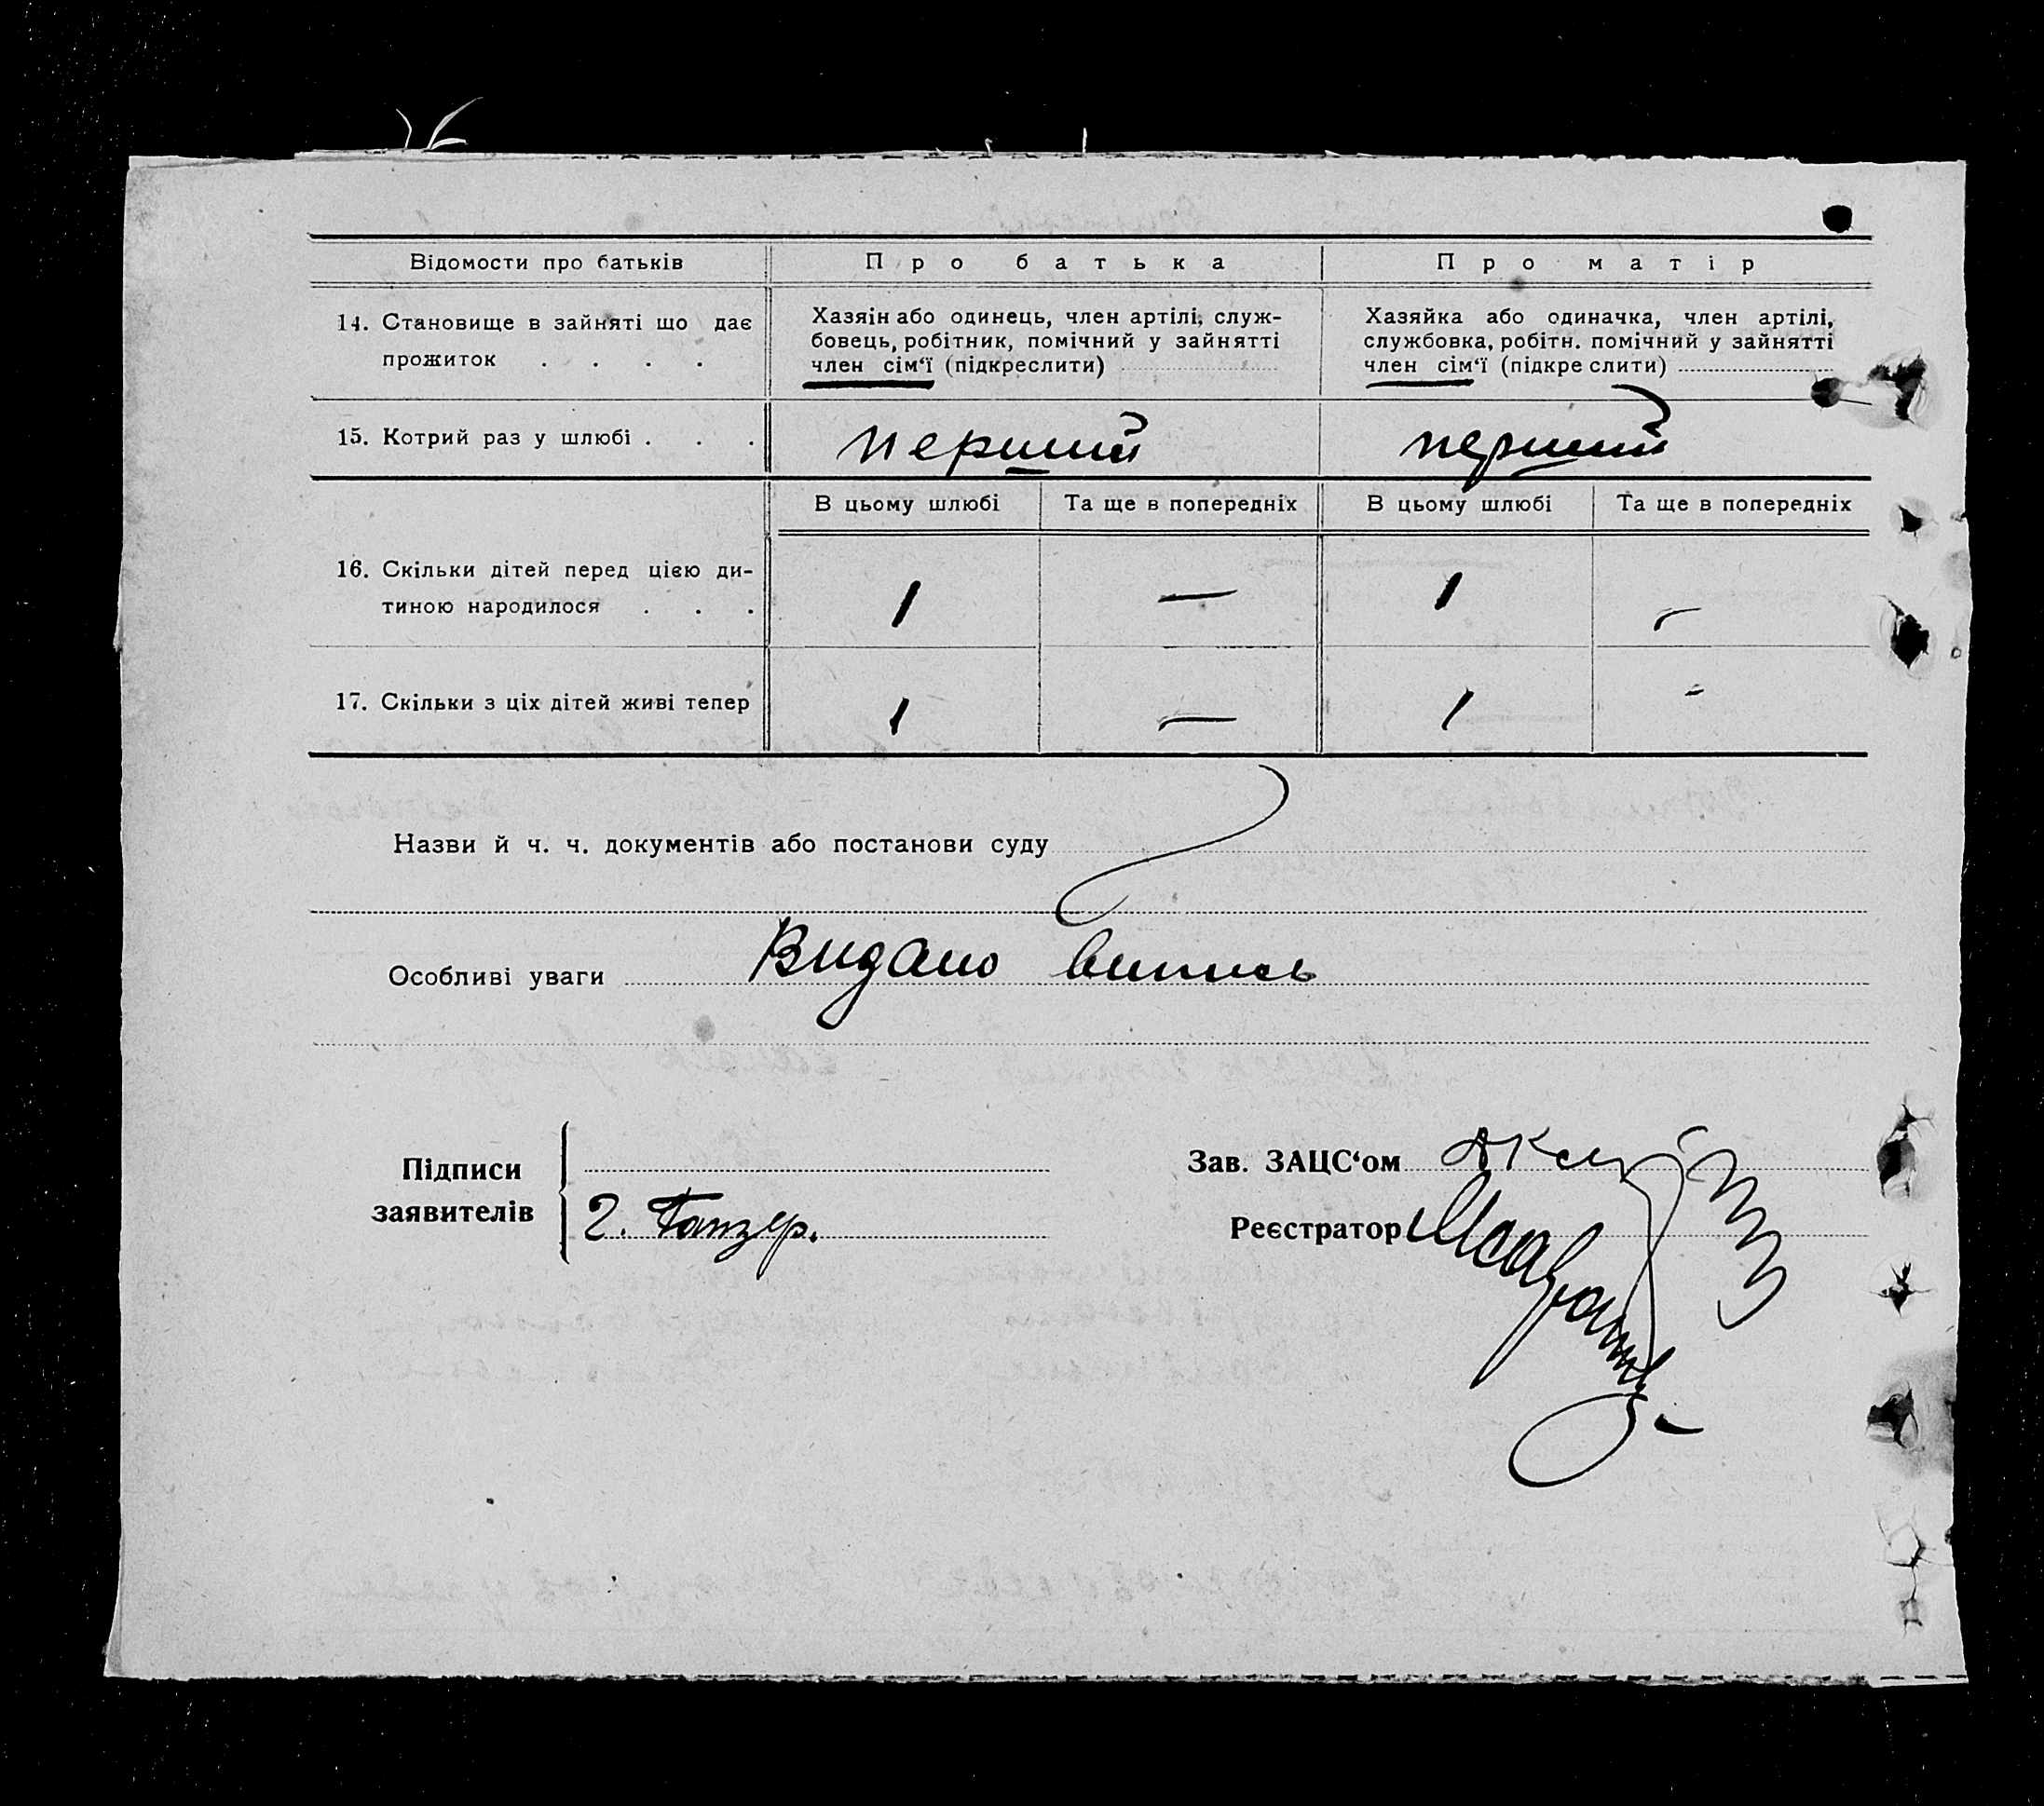 Відомости про батьків Про батька Про матір
14. Становище в зайняті що дає
прожиток . . . .
Хазяїн або одинець, член артілі, служ-
бовець, робітник, помічний у зайнятті
член сім‘ї (підкреслити)
Хазяйка або одиначка, член артілі,
службовка, робітн. помічний у зайнятті
член сім‘ї (підкре слити)
15. Котрий раз у шлюбі . . . перший перший
В цьому шлюбі Та ще в попередніх В цьому шлюбі Та ще в попередніх
16. Скільки дітей перед цією ди-
тиною народилося . . . 1 — 1 —
17. Скільки з ціх дітей живі тепер 1 — 1 -
Назви й ч. ч. документів або постанови суду
Особливі уваги Видано випись
Підписи
заявителів
2. Танзер.
Зав. ЗАЦС‘ом
Реєстратор